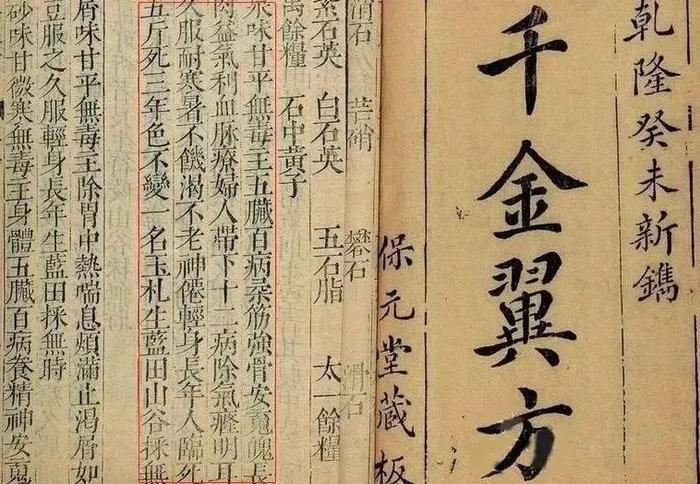 乾隆癸未新鐫
千金翼方
保元堂藏板
石 芒硝 礬石 滑石
石英 白石英 五石脂 太一餘糧
禹餘糧 石中黃子
味甘平無毒主五臟百病柔筋強骨安䰟魄長
肉益氣利血脉療婦人帶下十二病除氣癃明耳
久服耐寒暑不饑渴不老神僊輕身長年人臨死
五斤死三年色不變一名玉札生藍田山谷採無
屑味甘平無毒主除胃中熱喘息煩滿止渴屑如
豆服之久服輕身長年生藍田採無時
砂味甘微寒無毒主身體五臟百病養精神安䰟